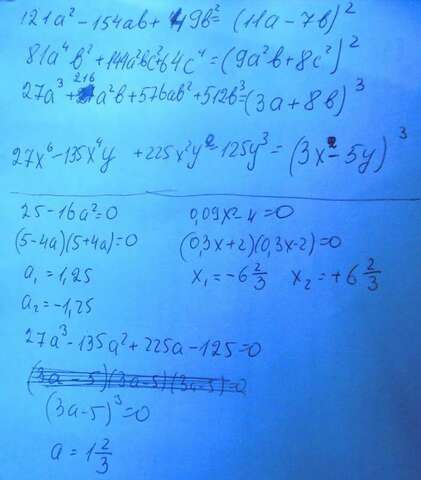 121a² - 154ab + 49b² = (11a - 7b)²
81a⁴b² + 144a²bc² + 64c⁴ = (9a²b + 8c²)²
27a³ + 216a²b + 576ab² + 512b³ = (3a + 8b)³
27x⁶ - 135x⁴y + 225x²y² - 125y³ = (3x² - 5y)³
25 - 16a² = 0
(5 - 4a)(5 + 4a) = 0
a₁ = 1,25
a₂ = -1,25
0,09x² - 4 = 0
(0,3x + 2)(0,3x - 2) = 0
x₁ = -6 2/3 x₂ = +6 2/3
27a³ - 135a² + 225a - 125 = 0
(3a - 5)(3a - 5)(3a - 5) = 0
(3a - 5)³ = 0
a = 1 2/3